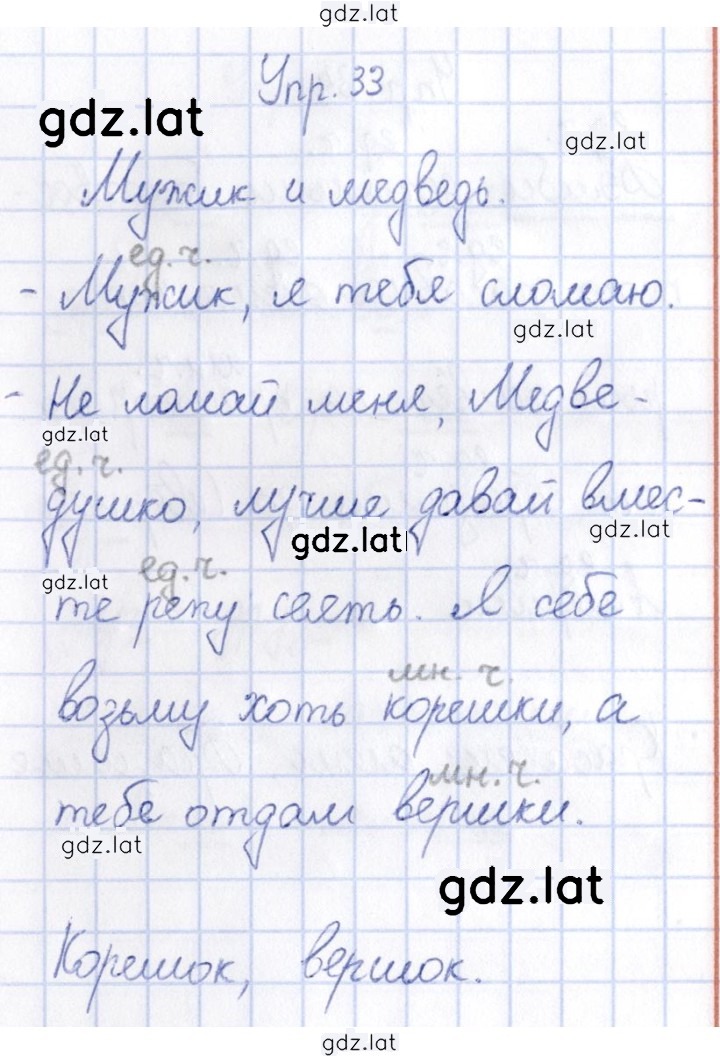 gdz.lat
Упр. 33
gdz.lat
gdz.lat
Мужик и медведь.
ед. ч.
- Мужик, я тебя сломаю.
gdz.lat
- Не ломай меня, Медве-
gdz.lat
ед. ч.
душко, лучше давай вмес-
gdz.lat
gdz.lat
ед. ч.
gdz.lat
те репу сеять. Я себе
мн. ч.
возьму хоть корешки, а
мн. ч.
тебе отдам вершки.
gdz.lat
gdz.lat
Корешок, вершок.
gdz.lat